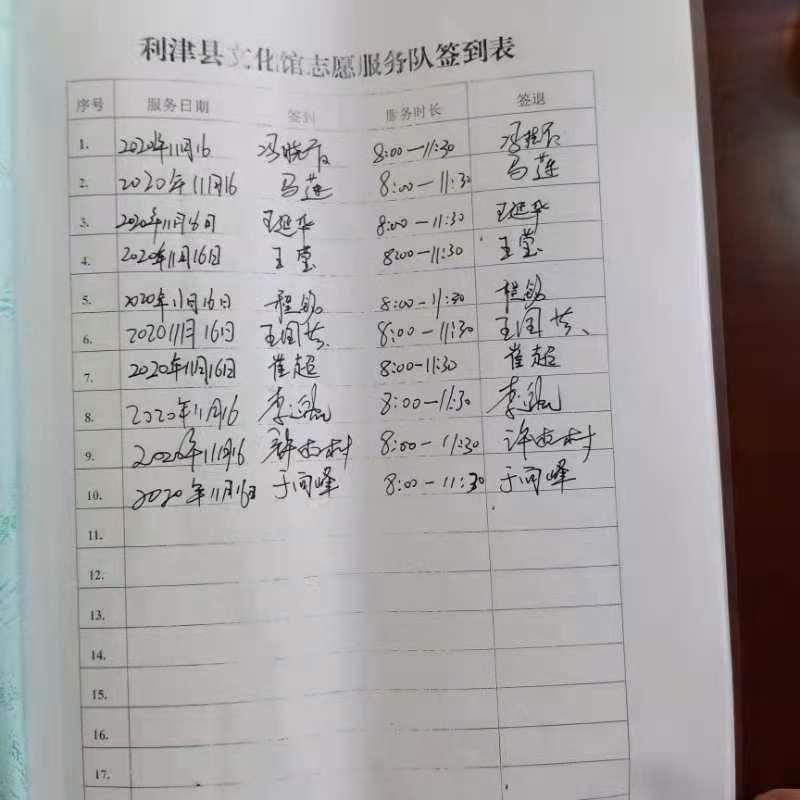 利津县文化馆志愿服务队签到表
序号 服务日期 签到 服务时长 签退
1. 2020年11月16 冯晓 8:00—11:30
2. 2020年11月16 马莲 8:00—11:30 马莲
3. 2020年11月16日 王延华 8:00—11:30 王延华
4. 2020年11月16日 王莹 8:00—11:30 王莹
5. 2020年11月16日 程 8:00—11:30 程
6. 202011月16日 王国芬 8:00—11:30 王国芬
7. 2020年11月16日 崔超 8:00—11:30 崔超
8. 2020年11月16 李 8:00—11:30 李
9. 2020年11月16 许 村 8:00—11:30 许 村
10. 2020年11月16日 于向峰 8:00—11:30 于向峰
11.
12.
13.
14.
15.
16.
17.